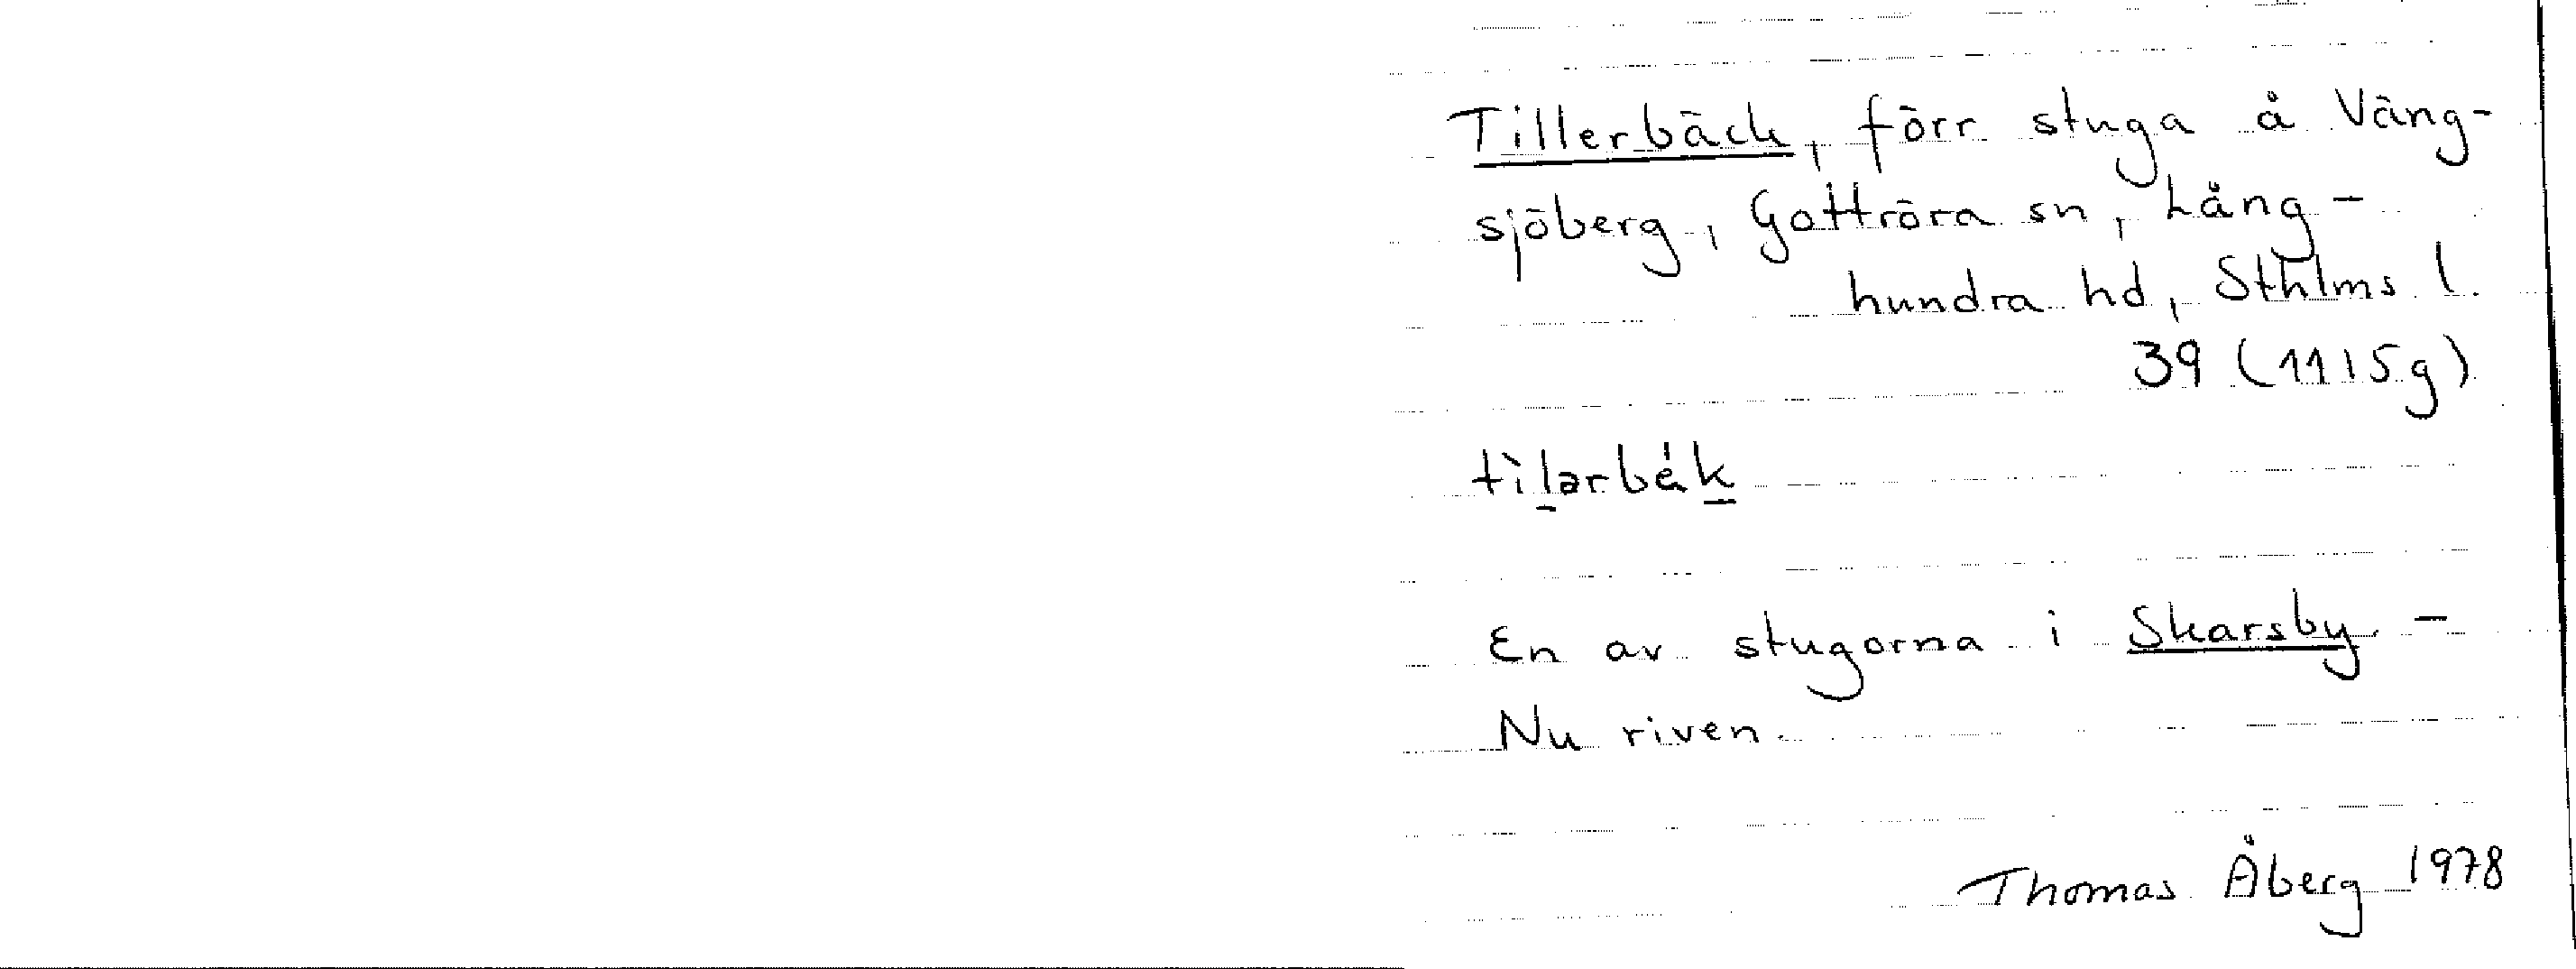 Tillerbäck, förr stuga å Väng-
sjöberg, Gottröra sn, Lång-
hundra hd, Sthlms l.
39 (1115g)
tìlarbék
En av stugorna i Skarsby -
Nu riven.
Thomas Åberg 1978